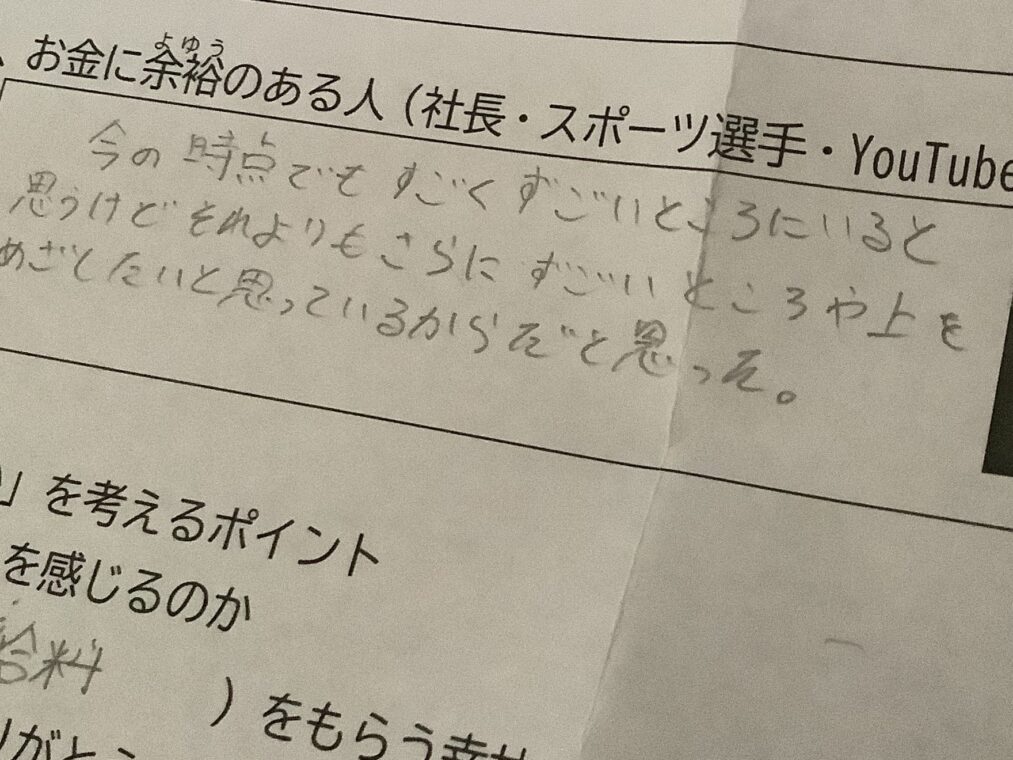 、お金に余裕のある人（社長・スポーツ選手・YouTube
よゆう
今の時点でもすごくすごいところにいると
思うけどそれよりもさらにすごいところや上を
めざしたいと思っているからだと思った。
」を考えるポイント
を感じるのか
給料
）をもらう幸せ
りがとう